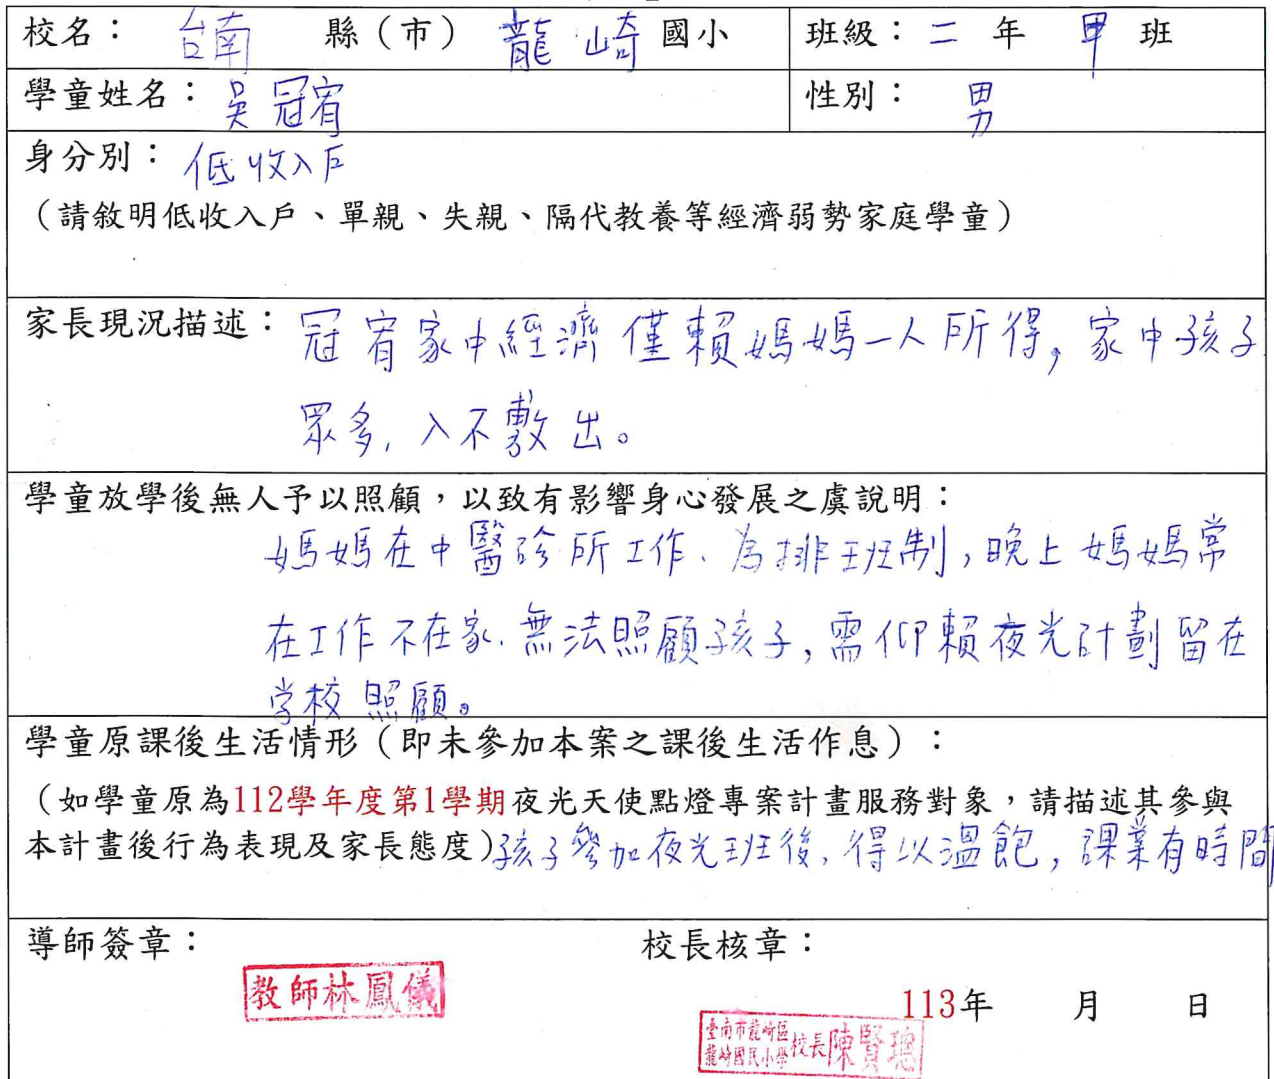 校名： 台南 縣（市） 龍崎 國小 班級：二 年 甲 班
學童姓名：吳冠宥 性別： 男
身分別：低收入戶
（請敘明低收入戶、單親、失親、隔代教養等經濟弱勢家庭學童）
家長現況描述：冠宥家中經濟僅賴媽媽一人所得，家中孩子
眾多，入不敷出。
學童放學後無人予以照顧，以致有影響身心發展之虞說明：
媽媽在中醫診所工作、為排班制，晚上媽媽常
在工作不在家、無法照顧孩子，需仰賴夜光計劃留在
学校照顧。
學童原課後生活情形（即未參加本案之課後生活作息）：
（如學童原為112學年度第1學期夜光天使點燈專案計畫服務對象，請描述其參與
本計畫後行為表現及家長態度)孩子參加夜光班後，得以溫飽，課業有時間
導師簽章： 校長核章：
教師林鳳儀
113年 月 日
臺南市龍崎區
龍崎國民小學校長陳賢聰